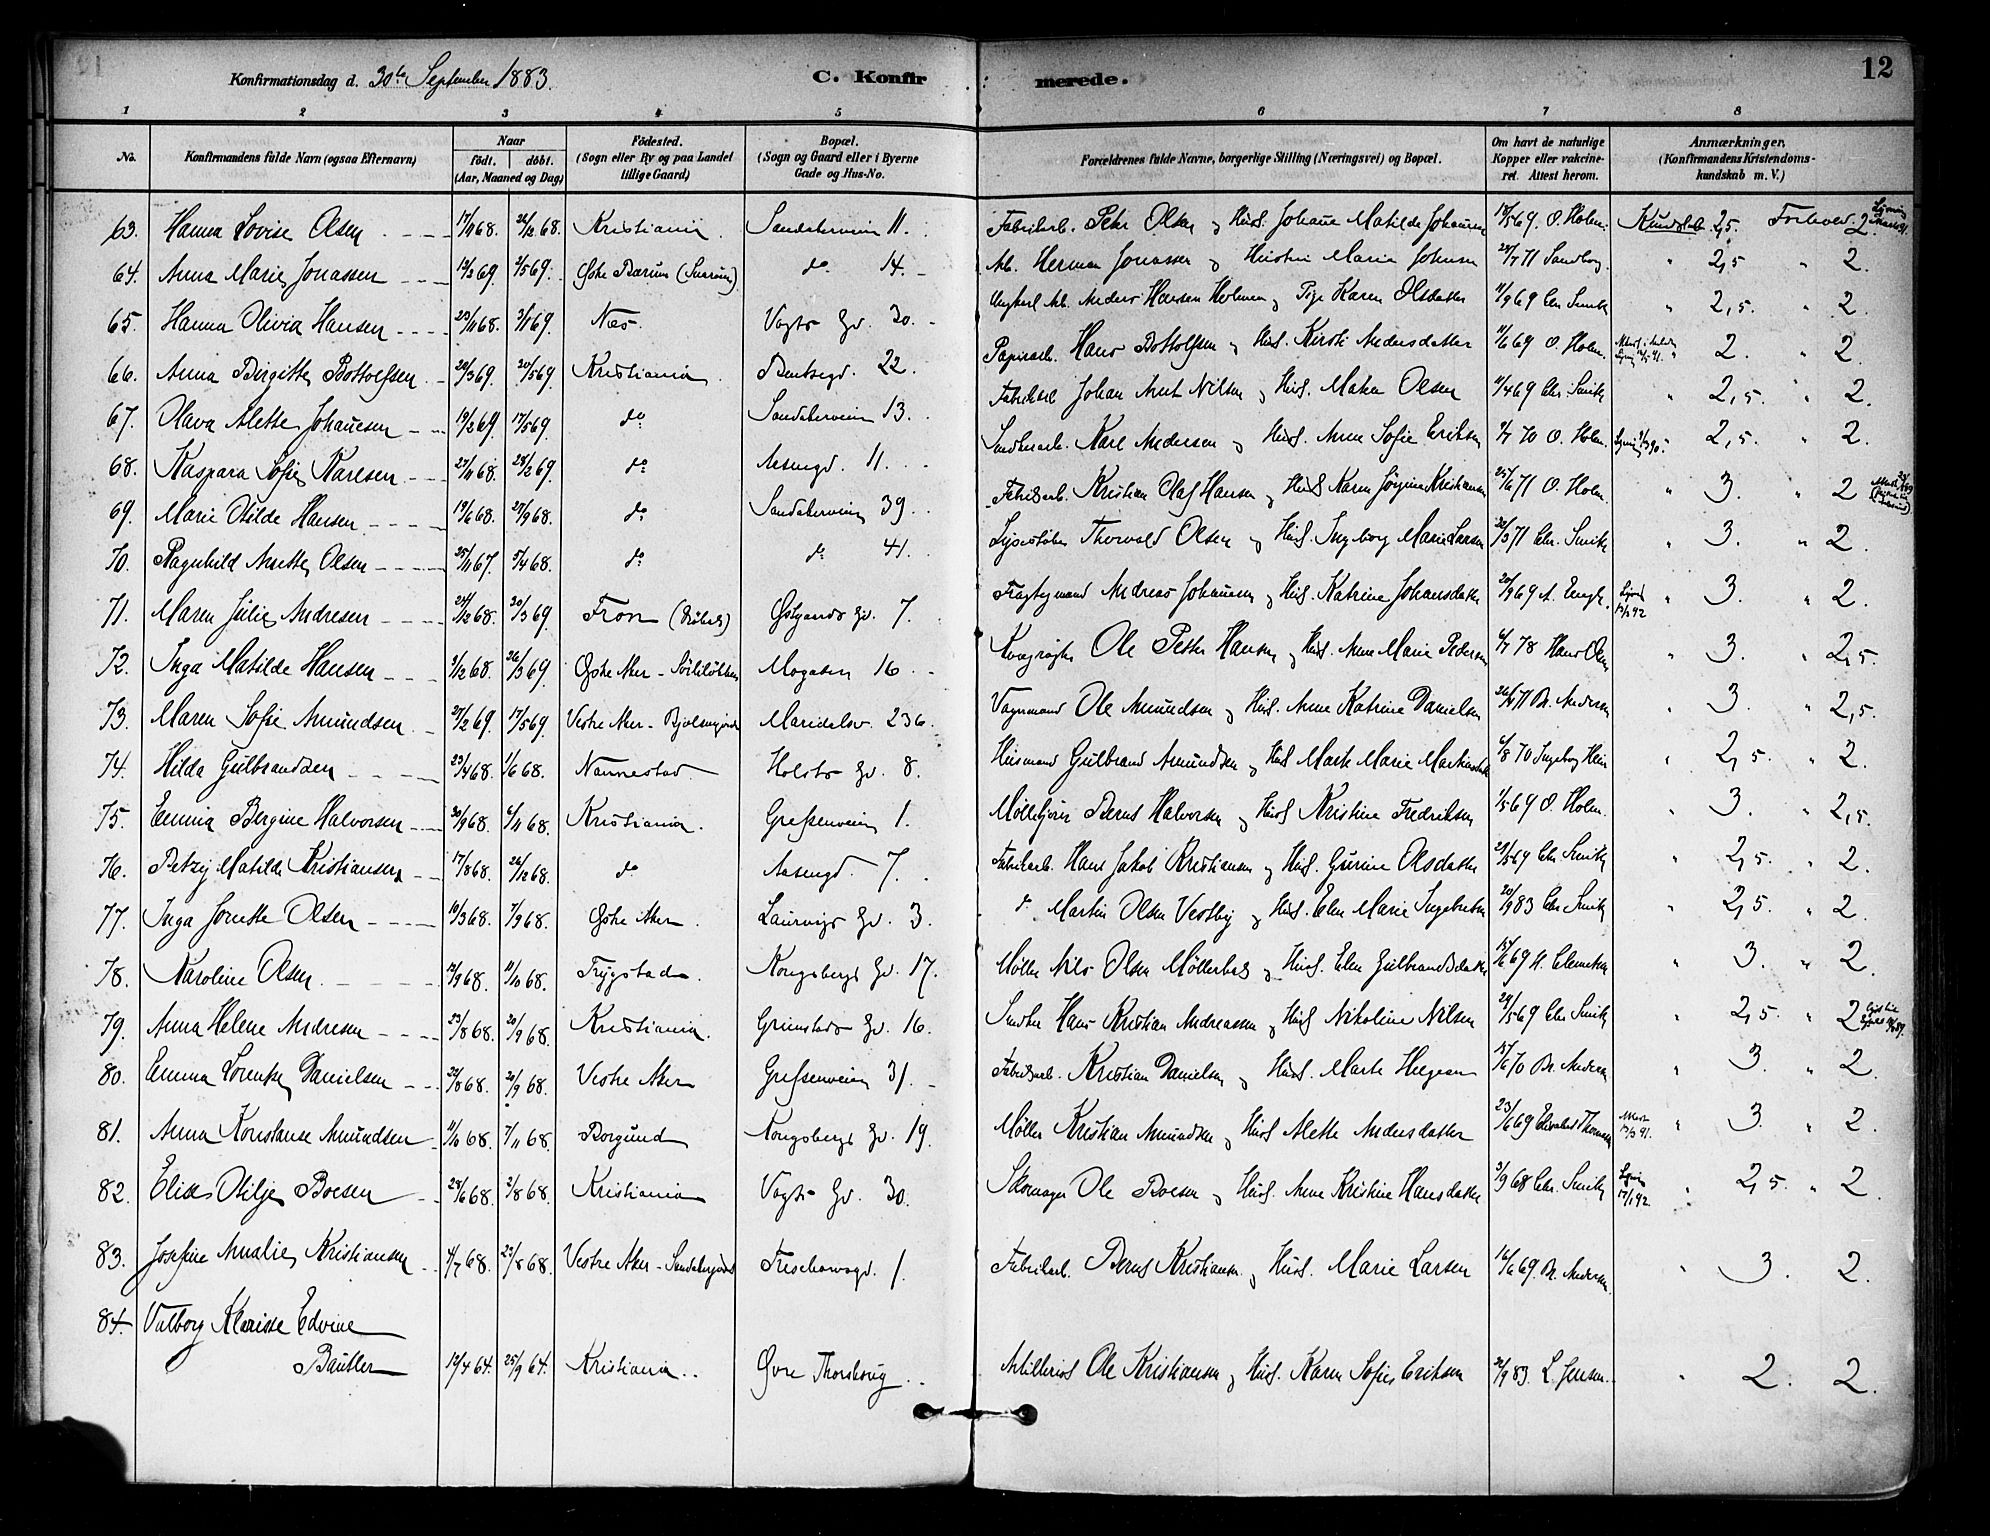 Konfirmationsdag d. 30te September 1883. C. Konfirmerede. 12
1 2 3 4 5 6 7 8
No. Konfirmandens fulde Navn (ogsaa Efternavn) Naar födt. döbt. (Aar, Maaned og Dag) Födested. (Sogn eller By og paa Landet tillige Gaard) Bopæl. (Sogn og Gaard eller i Byerne Gade og Hus-No. Forældrenes fulde Navne, borgerlige Stilling (Næringsvei) og Bopæl. Om havt de naturlige Kopper eller vakcineret. Attest herom. Anmærkninger. (Konfirmandens Kristendomskundskab m. V.)
63. Hanna Lovise Olsen 17/11 68. 26/12 68. Kristiania. Sandakerveien 11. Fabrikarb. Peter Olsen og Hust. Johane Matilde Johansen 18/5 69. O. Holm. Kundskab 2,5. Forhold 2.
64. Anna Marie Jonassen 12/2 69 2/5 69. Østre Bærum do. 14. Arb. Herman Jonassen og Hustru Maria Johnsen 28/7 71 Sandberg. " 2,5 " 2.
65. Hanna Olivia Hansen 23/11 68. 3/1 69. Næs. Vogts Gd. 30. Ungkarl Arb. Anders Hansen Holmen og Pige Karen Olsdatter 11/9 69 Chr. Smith " 2,5. " 2.
66. Anna Birgitte Bottolfsen 28/3 69. 30/5 69. Kristiania. Bentsegd. 22. Papirarb. Hans Bottolfsen og Hust. Kirsti Andersdatter 11/6 69 O. Holm. " 2. " 2.
67. Olava Alette Johansen 19/2 69. 17/5 69. do Sandakerveien 13. Johan Arnt Nilsen og Hust. Maren Olsen 11/4 69 Chr. Smith " 2,5. " 2.
68. Kaspara Sofie Karlsen 27/11 68. 28/2 69. do Aasengd. 11. Karl Andersen og Hust. Anne Sofie Eriksen 3/7 70 O. Holm. 2,5. " 2.
69. Marie Otilde Hansen 19/6 68. 27/9 68. do Sandakerveien 39. Fabrikarb. Kristian Olaf Hansen og Hust. Karen Jørgine Kristiansen 25/6 71 O. Holm. " 3. " 2
70. Ragnhild Anette Olsen 25/11 67. 5/4 68. do do 41. Thorvald Olsen og Hust. Ingeborg Marie Larsen 22/3 71 Chr. Smith " 3. " 2.
71. Maren Julie Andresen 24/12 68. 30/3 69. Fron Østgaards Gd. 7. Fragtemand Andreas Johansen og Hust. Katrine Johansdatter 20/9 69 A. Engh. " 3. " 2.
72. Inga Matilde Hansen 3/12 68. 26/3 69. Østre Aker - Mogaten 16. Ole Petter Hansen og Hust. Anne Marie Pedersen 4/7 78 Hans Olsen " 3. " 2,5.
73. Maren Sofie Amundsen 27/2 69. 17/5 69. Vestre Aker - Maridalsv. 236. Vognmand Ole Amundsen og Hust. Anne Katrine Danielsen 26/4 71 Br. Andersen " 3. " 2,5.
74. Hilda Gulbrandsen 23/4 68. 1/6 68. Nannestad. Holsts Gd. 8. Husmand Gulbrand Amundsen og Hust. Marte Marie Martinsdatter 6/8 70 Ingeborg Hein " 2,5 " 2.
75. Emma Bergine Halvorsen 30/9 68. 6/11 68. Kristiania. Grefsenveien 1. Bernt Halvorsen og Hust. Kristine Fredriksen 1/5 69 O. Holm. " 3. " 2,5.
76. Betsy Matilde Kristiansen 17/8 68. 26/12 68. do Aasengd. 7. Fabrikarb. Hans Jakob Kristiansen og Hust. Gurine Olsdatter 29/5 69 Chr. Smith " 2,5. " 2.
77. Inga Jonette Olsen 10/3 68. 7/9 68. Østre Aker. Laurvigs Gd. 3. do Martin Olsen Vestby og Hust. Elen Marie Ingebretsen 20/9 83 Chr. Smith " 2,5. " 2.
78. Karoline Olsen 12/9 68. 11/10 68. Trygstad. Kongsbergs Gd. 17. Møller Nils Olsen Møllerhus og Hust. Elen Gulbrandsdatter 15/6 69 H. Clemetsen " 3. " 2.
79. Anna Helene Andresen 23/8 68. 20/9 68. Kristiania. Grimstads Gd. 16. Hans Kristian Andreassen og Hust. Nikoline Nilsen 29/5 69 Chr. Smith " 2,5. " 2
80. Emma Lorentze Danielsen 22/8 68. 20/9 68. Vestre Aker Grefsenveien 31. Fabrikarb. Kristian Danielsen og Hust. Marte Helgesen 15/6 70 Br. Andersen " 3. " 2.
81. Anna Konstanse Amundsen 11/10 68. 7/11 68. Borgund Kongsbergs Gd. 19. Møller Kristian Amundsen og Hust. Alette Andersdatter 23/6 69 Elisabeth Thomsen " 3. " 2.
82. Elise Otilje Boesen 28/6 68. 2/8 68. Kristiania Vogts Gd. 30. Skomager Ole Boesen og Hust. Anne Kristine Hansdatter 3/9 68 Chr. Smith 17/1 92 " 2,5. " 2.
83. Josefine Amalie Kristiansen 4/7 68. 23/8 68. Vestre Aker - 1. Fabrikarb. Bernt Kristiansen og Hust. Marie Larsen 16/6 69. Br. Andersen " 3. 2.
84. Valborg Klarisse Edvine
Bautler 12/4 64. 25/9 64. Kristiania.. Øvre Ole Kristiansen og Hust. Karen Sofie Eriksen 2/9 83. L. Jensen. " 2. 2.